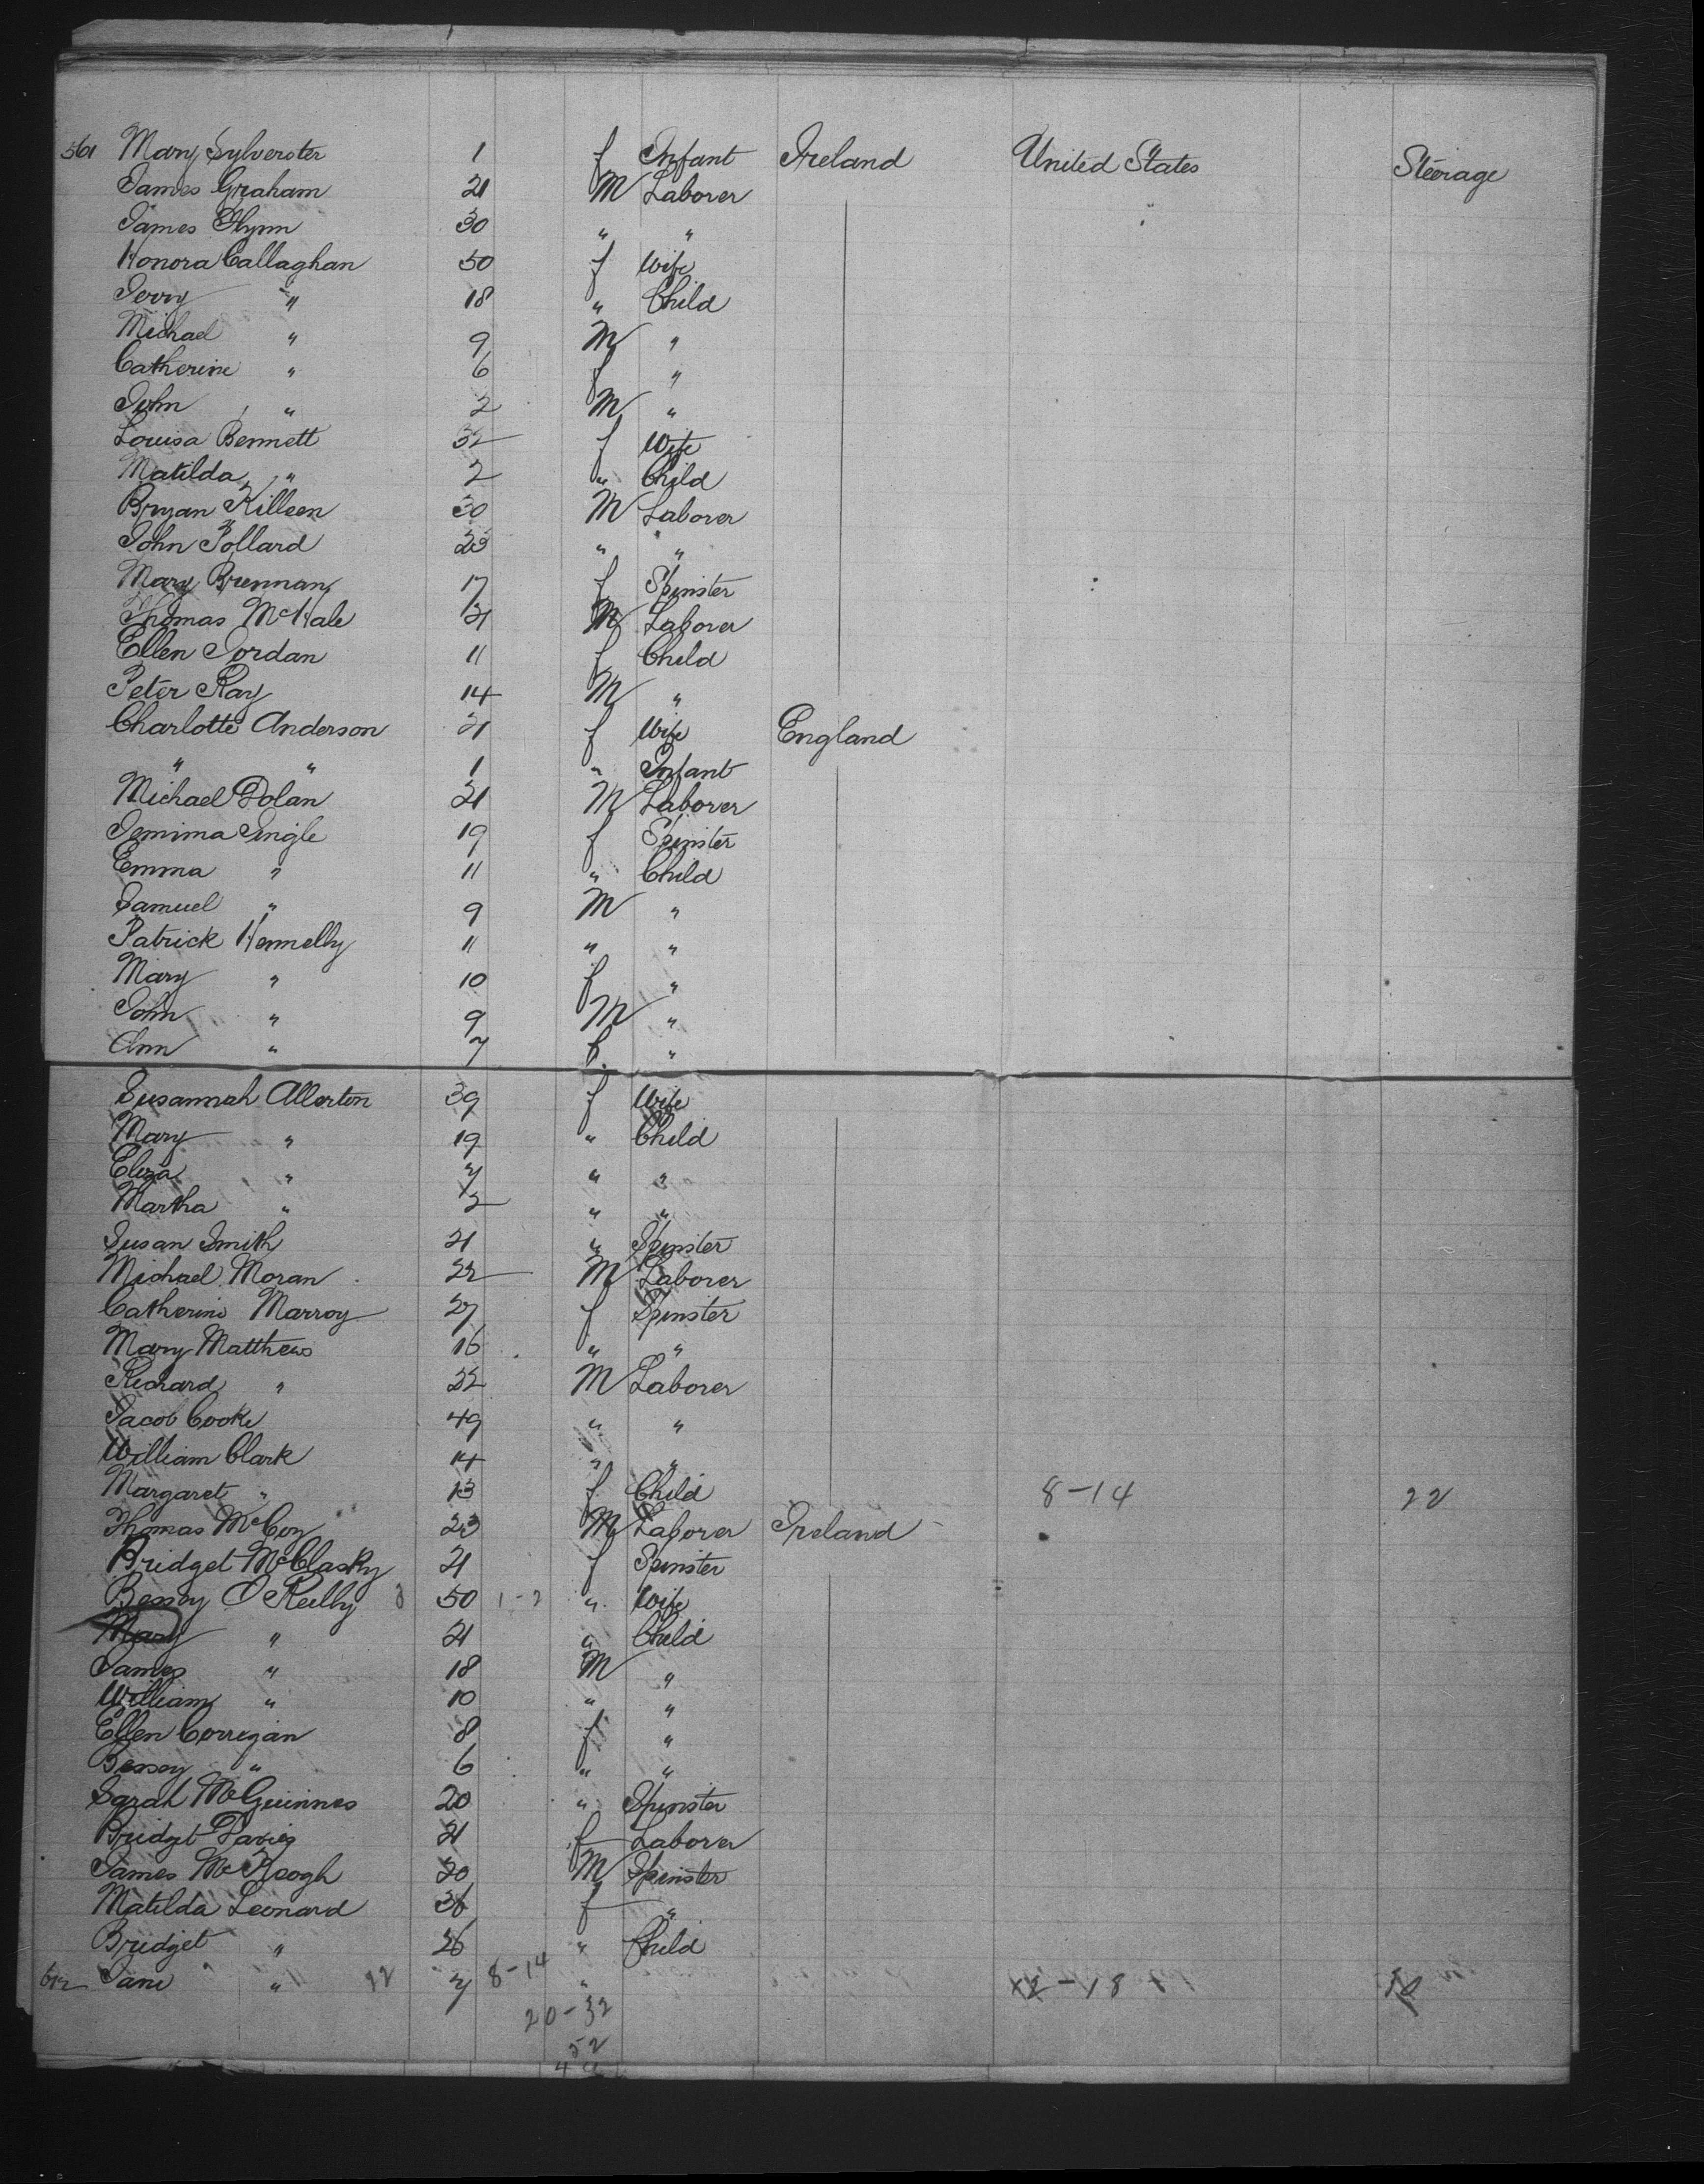 561 Mary Sylverster 1 f Infant Ireland United States Steerage
James Graham 21 M Laborer
James Glynn 30 " "
Honora Callaghan 50 f Wife
Jerry " 18 " Child
Michael " 9 M "
Catherine " 6 f "
John " 2 M "
Louisa Bennett 32 f Wife
Matilda " 2 " Child
Bryan Killeen 30 M Laborer
John Pollard 23 " "
Mary Brennan 17 f Spinster
Thomas McHale 21 M Laborer
Ellen Jordan 11 f Child
Peter Ray 14 M "
Charlotte Anderson 21 f Wife England
" " 1 " Infant
Michael Dolan 21 M Laborer
Jemima Single 19 f Spinster
Emma " 11 " Child
Samuel " 9 M "
Patrick Hennelly 11 " "
Mary " 10 f "
John " 9 M "
Ann " 7 f. "
Susannah Allerton 39 f Wife
Mary " 19 " Child
Eliza " 7 " "
Martha " 2 " "
Susan Smith 21 " Spinster
Michael Moran 22 M Laborer
Catherine Marroy 27 f Spinster
Mary Matthews 16 " "
Richard " 22 M Laborer
Jacob Cooke 49 " "
William Clark 14 " "
Margaret " 13 f Child 8-14 22
Thomas McCoy 23 M Laborer Ireland
Bridget McClasky 21 f Spinster
Bessy O Reilly 3 50 1-2 " Wife
Mary " 21 " Child
James " 18 M "
William " 10 " "
Ellen Corrigan 8 f "
Bessy " 6 " "
Sarah McGuinnes 20 " Spinster
Bridget Davies 21 f Laborer
James McKeogh 20 M Spinster
Matilda Leonard 36 f "
Bridget " 26 " Child
612 Jane " 22 7 8-14 " 12-18
20-32
52